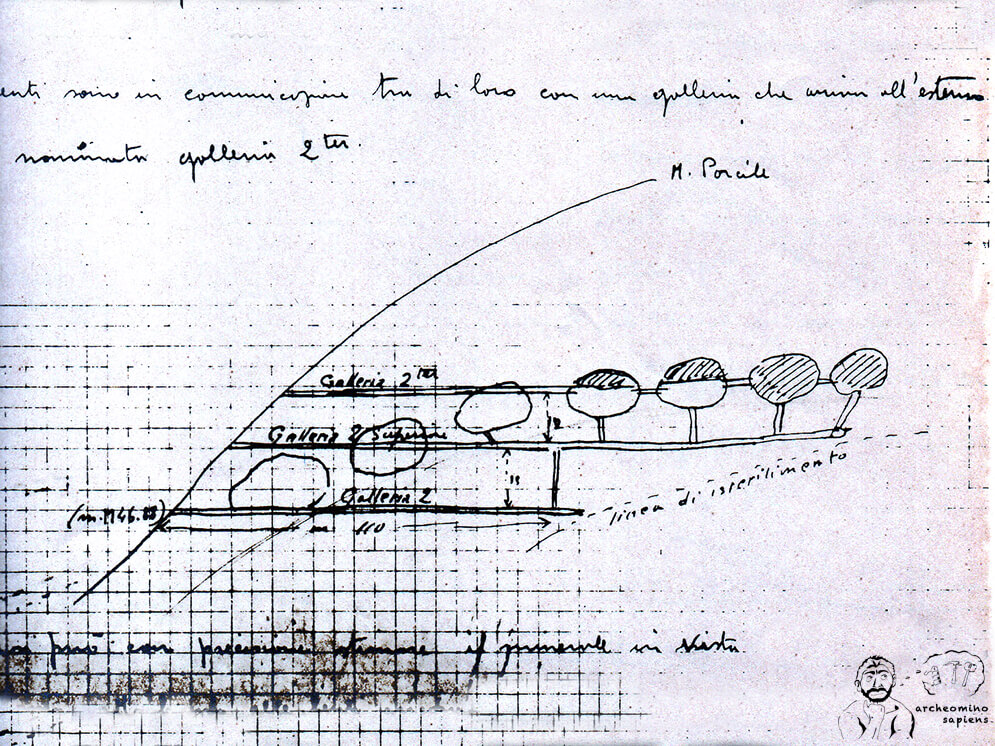 enti sono in communicazione tra di loro con una galleria che arriva all'esterno
nominata galleria 2 ter.
M. Porcile
Galleria 2 ter
Galleria 2 Superiore
Galleria 2
110
linea di isterilimento
può con precisione stimare il minerale in vista
archeomino
sapiens